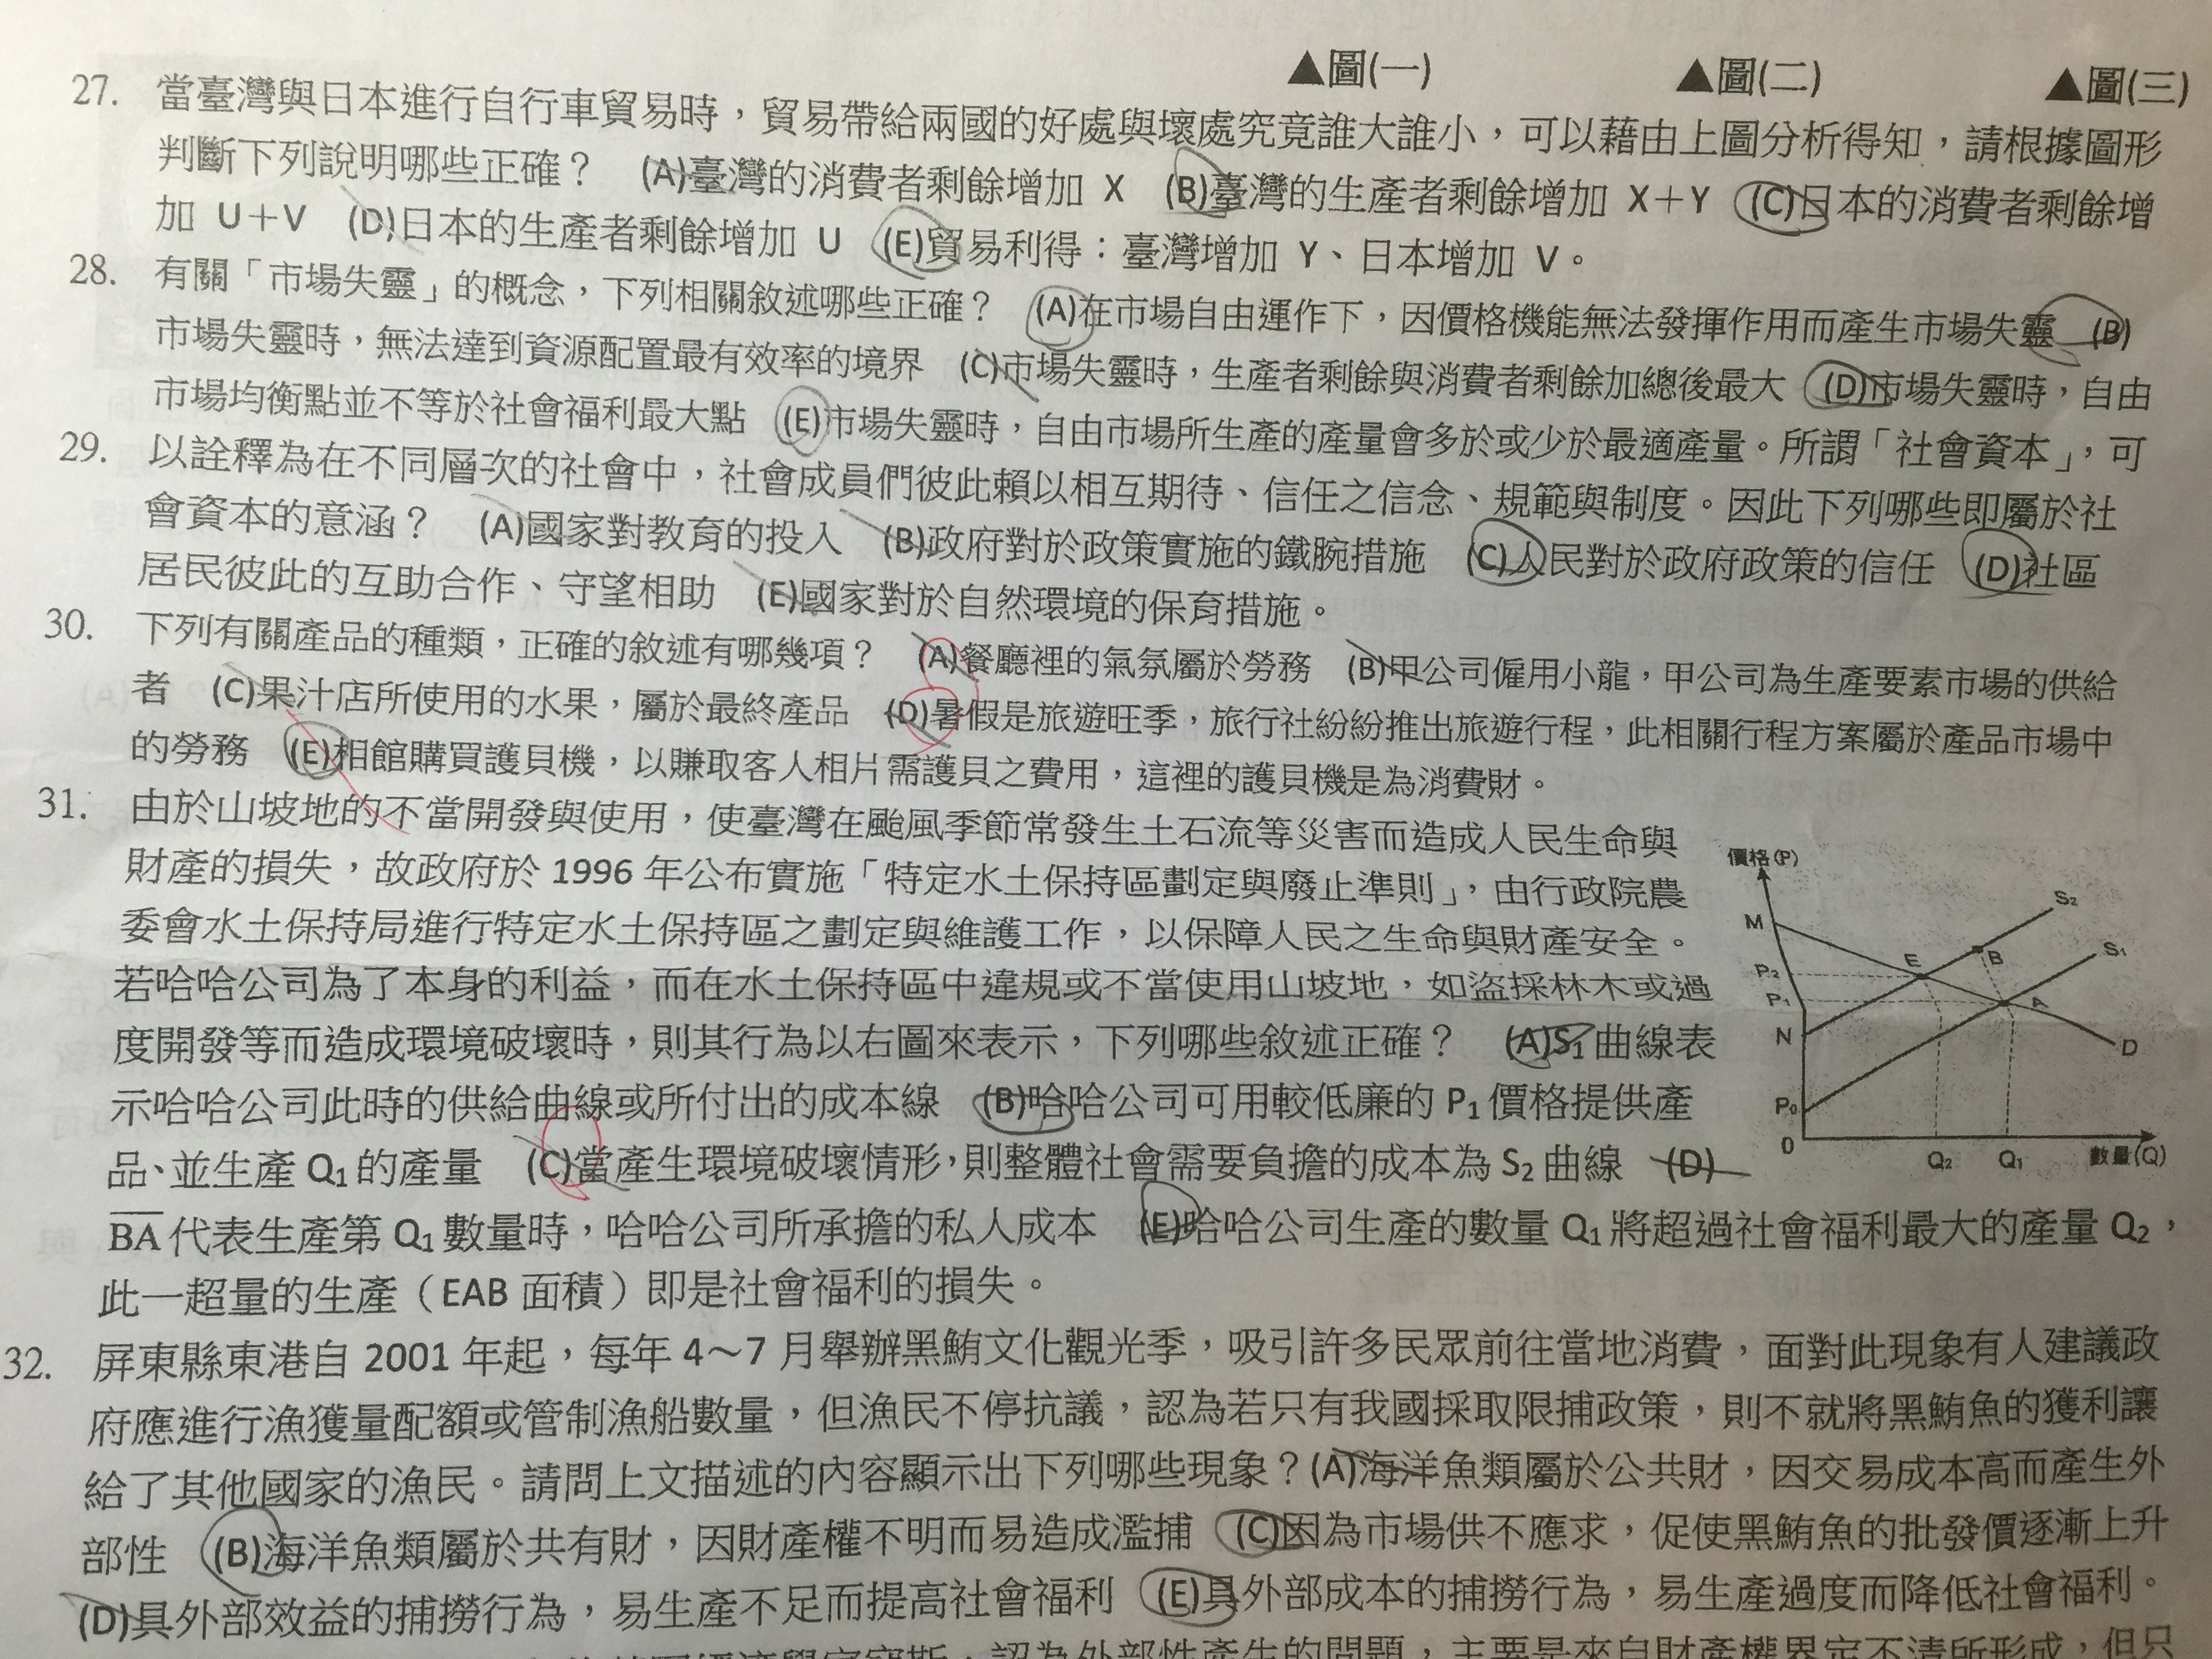 ▲圖(一) ▲圖(二) ▲圖(三)
27. 當臺灣與日本進行自行車貿易時，貿易帶給兩國的好處與壞處究竟誰大誰小，可以藉由上圖分析得知，請根據圖形
判斷下列說明哪些正確？ (A)臺灣的消費者剩餘增加 X (B)臺灣的生產者剩餘增加 X＋Y (C)日本的消費者剩餘增
加 U＋V (D)日本的生產者剩餘增加 U (E)貿易利得：臺灣增加 Y、日本增加 V。
28. 有關「市場失靈」的概念，下列相關敘述哪些正確？ (A)在市場自由運作下，因價格機能無法發揮作用而產生市場失靈 (B)
市場失靈時，無法達到資源配置最有效率的境界 (C)市場失靈時，生產者剩餘與消費者剩餘加總後最大 (D)市場失靈時，自由
市場均衡點並不等於社會福利最大點 (E)市場失靈時，自由市場所生產的產量會多於或少於最適產量。所謂「社會資本」，可
29. 以詮釋為在不同層次的社會中，社會成員們彼此賴以相互期待、信任之信念、規範與制度。因此下列哪些即屬於社
會資本的意涵？ (A)國家對教育的投入 (B)政府對於政策實施的鐵腕措施 (C)人民對於政府政策的信任 (D)社區
居民彼此的互助合作、守望相助 (E)國家對於自然環境的保育措施。
30. 下列有關產品的種類，正確的敘述有哪幾項？ (A)餐廳裡的氣氛屬於勞務 (B)甲公司僱用小龍，甲公司為生產要素市場的供給
者 (C)果汁店所使用的水果，屬於最終產品 (D)暑假是旅遊旺季，旅行社紛紛推出旅遊行程，此相關行程方案屬於產品市場中
的勞務 (E)相館購買護貝機，以賺取客人相片需護貝之費用，這裡的護貝機是為消費財。
31. 由於山坡地的不當開發與使用，使臺灣在颱風季節常發生土石流等災害而造成人民生命與
財產的損失，故政府於 1996 年公布實施「特定水土保持區劃定與廢止準則」，由行政院農
委會水土保持局進行特定水土保持區之劃定與維護工作，以保障人民之生命與財產安全。
若哈哈公司為了本身的利益，而在水土保持區中違規或不當使用山坡地，如盜採林木或過
度開發等而造成環境破壞時，則其行為以右圖來表示，下列哪些敘述正確？ (A)S₁曲線表
示哈哈公司此時的供給曲線或所付出的成本線 (B)哈哈公司可用較低廉的 P₁ 價格提供產
品、並生產 Q₁ 的產量 (C)當產生環境破壞情形，則整體社會需要負擔的成本為 S₂ 曲線 (D)
BA 代表生產第 Q₁ 數量時，哈哈公司所承擔的私人成本 (E)哈哈公司生產的數量 Q₁ 將超過社會福利最大的產量 Q₂，
此一超量的生產（EAB 面積）即是社會福利的損失。
價格(P)
S₂
M
S₁
E
B
P₂
P₁
A
N
D
P₀
0
Q₂
Q₁
數量(Q)
32. 屏東縣東港自 2001 年起，每年 4～7 月舉辦黑鮪文化觀光季，吸引許多民眾前往當地消費，面對此現象有人建議政
府應進行漁獲量配額或管制漁船數量，但漁民不停抗議，認為若只有我國採取限捕政策，則不就將黑鮪魚的獲利讓
給了其他國家的漁民。請問上文描述的內容顯示出下列哪些現象？(A)海洋魚類屬於公共財，因交易成本高而產生外
部性 (B)海洋魚類屬於共有財，因財產權不明而易造成濫捕 (C)因為市場供不應求，促使黑鮪魚的批發價逐漸上升
(D)具外部效益的捕撈行為，易生產不足而提高社會福利 (E)具外部成本的捕撈行為，易生產過度而降低社會福利。
認為外部性產生的問題，主要是來自財產權界定不清所形成，但只